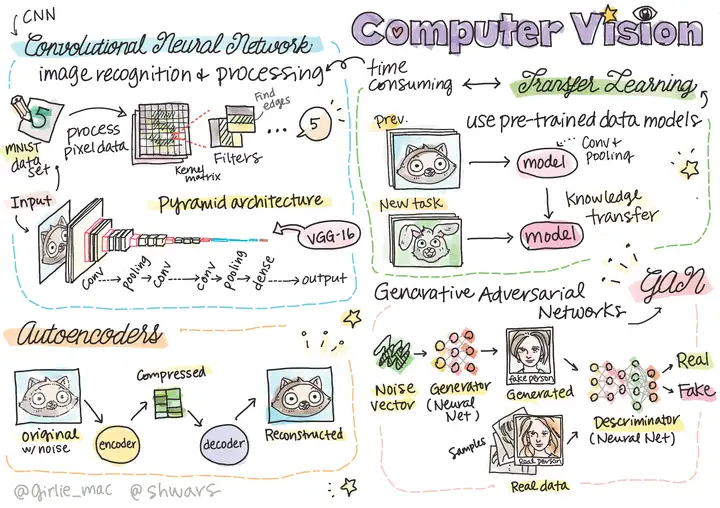 CNN
Convolutional Neural Network
image recognition & processing
MNIST
data
set
5
process
pixel data
Kernel
matrix
Find
edges
Filters
...
5
Input
Pyramid architecture
VGG-16
conv
pooling
conv
conv
pooling
dense
output
Computer Vision
time
consuming
Transfer Learning
use pre-trained data models
prev.
model
Conv +
pooling
Knowledge
transfer
New task
model
Autoencoders
original
w/ noise
encoder
Compressed
decoder
Reconstructed
Generative Adversarial
Networks
GAN
Noise
vector
Generator
(Neural Net)
fake person
Generated
Samples
Real person
Real data
Descriminator
(Neural Net)
Real
Fake
@girlie_mac @shwars